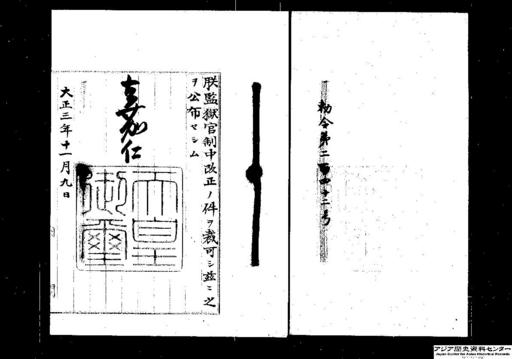 勅令第二百四十二号
朕監獄官制中改正ノ件ヲ裁可シ茲ニ之
ヲ公布セシム
嘉仁
天皇
御璽
大正三年十一月九日
アジア歴史資料センター
Japan Center for Asian Historical Records